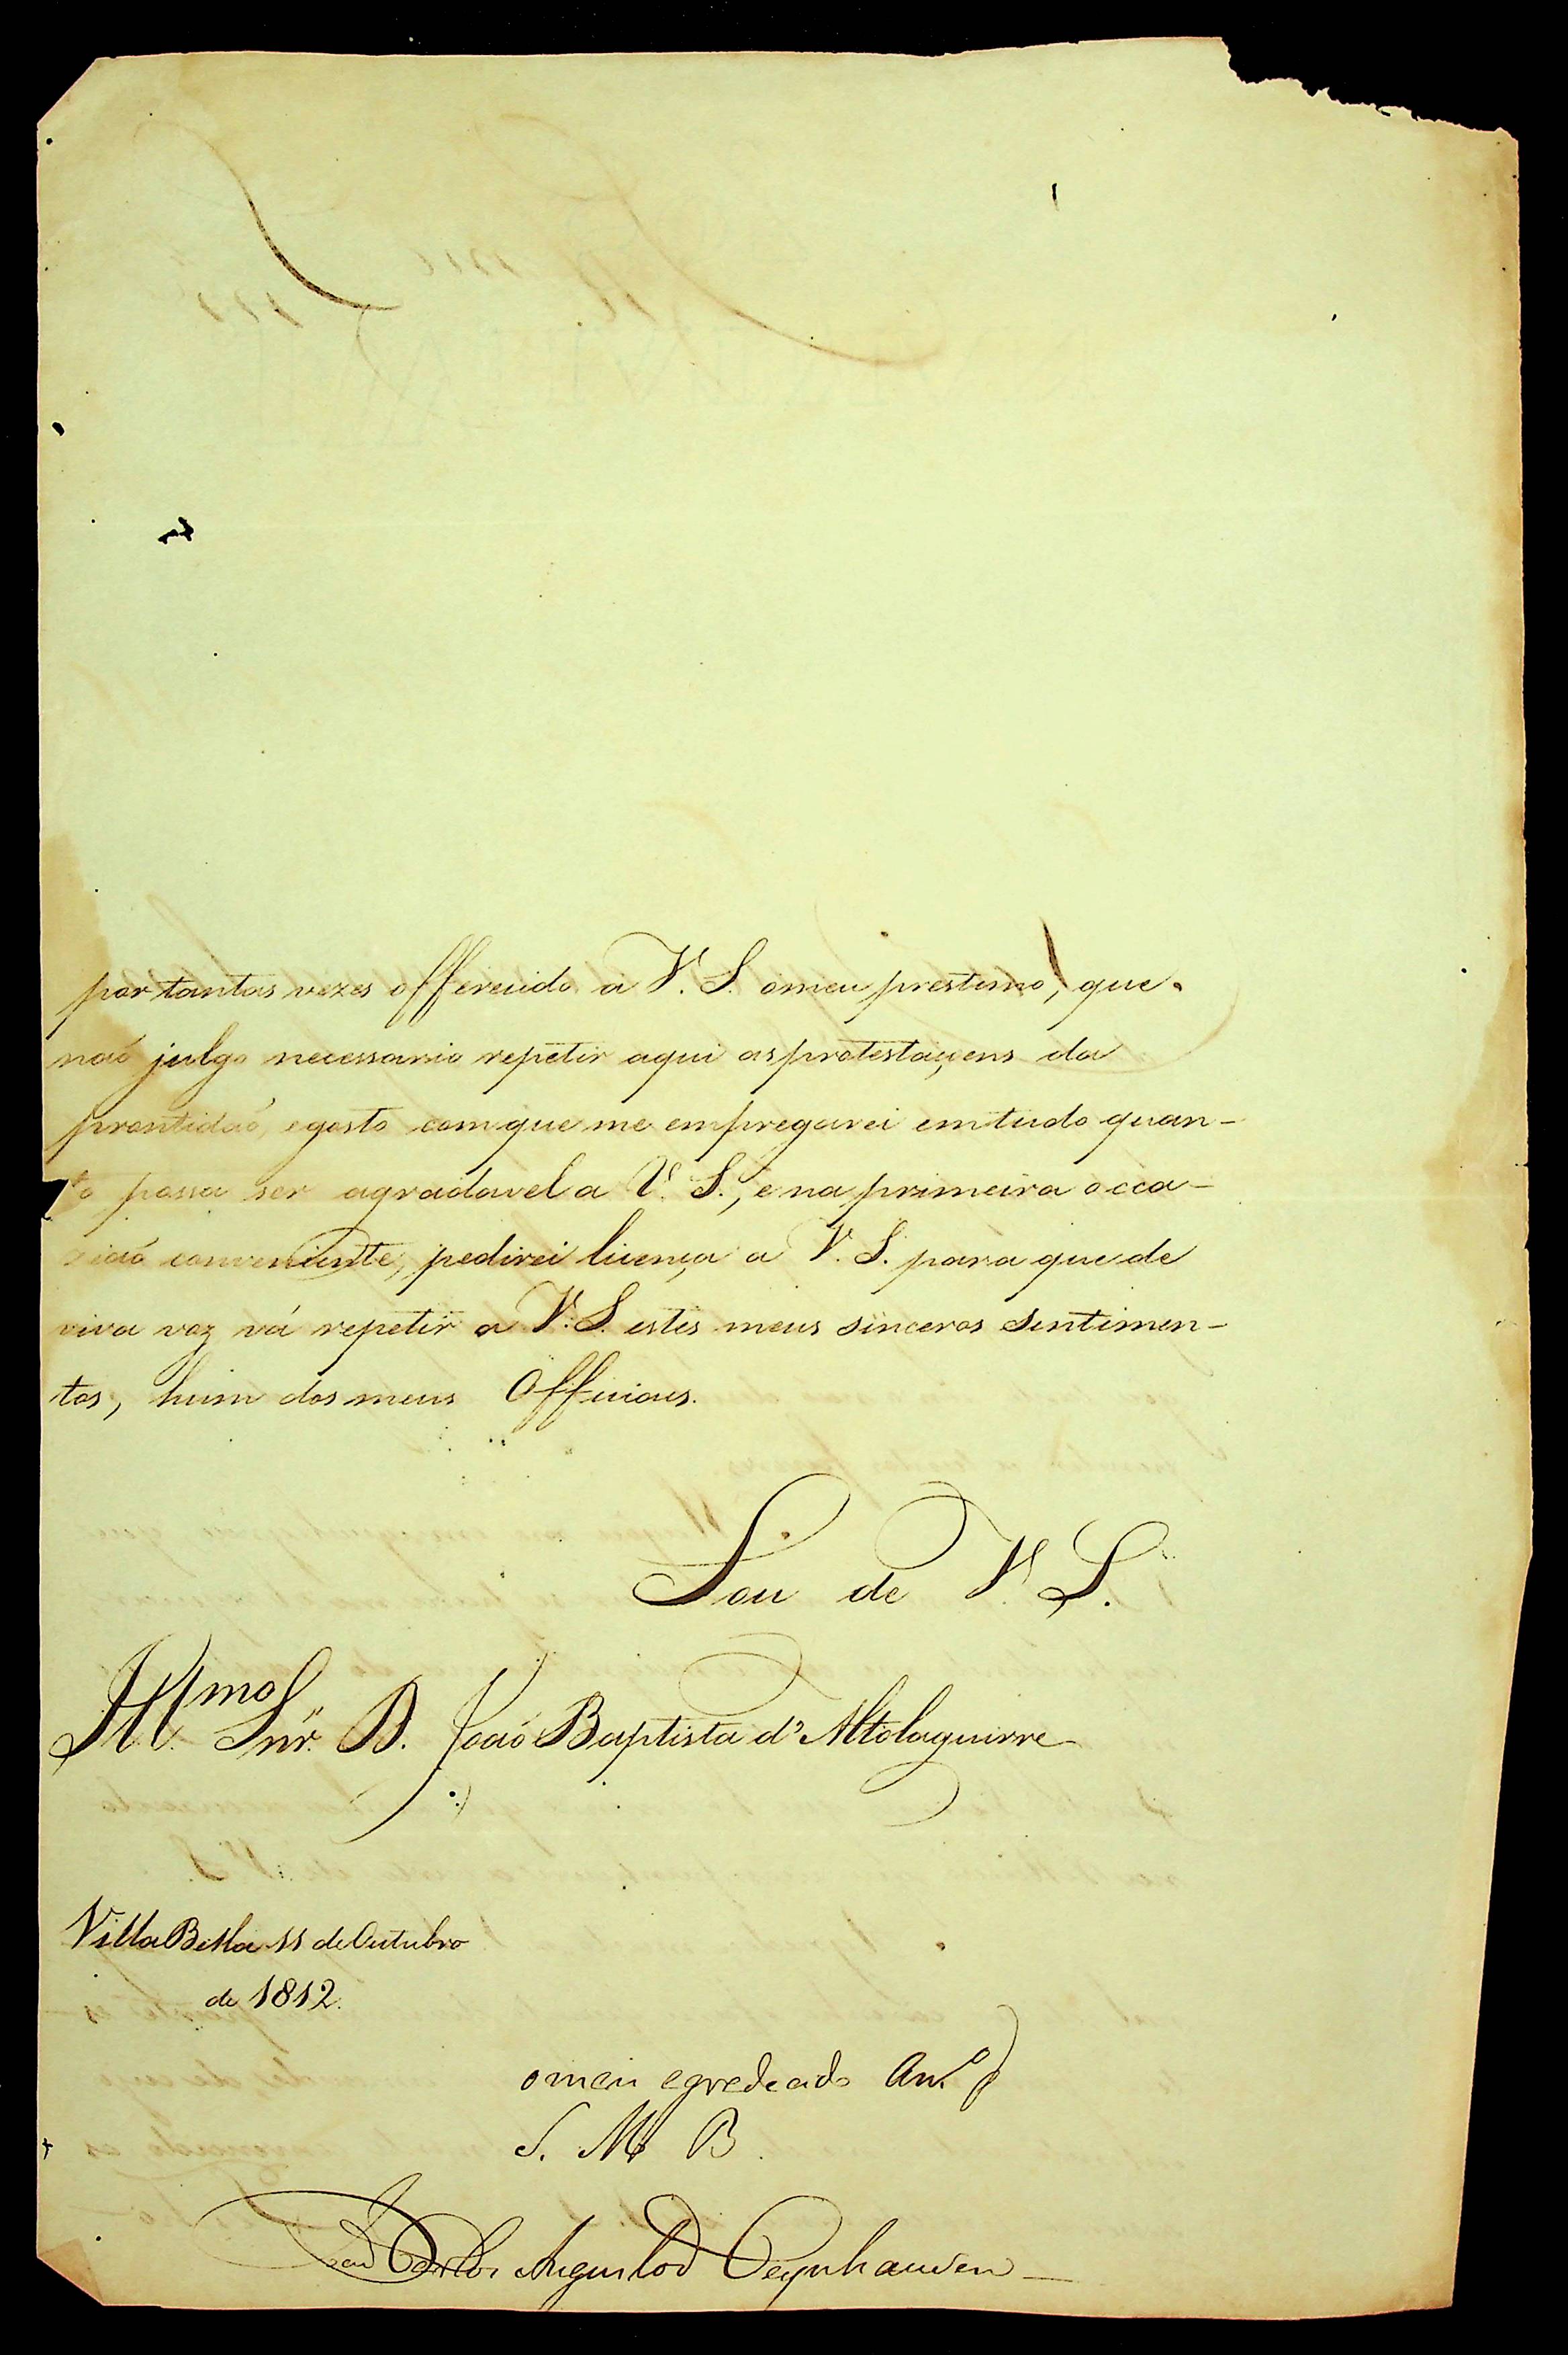 por tantas vezes offerecido a V. S. omeu prestimo, que
naõ julgo necessario repetir aqui as protestaçoens da
prontidaõ, egosto comque me empregarei emtudo quan-
to possa ser agradavel a V. S., e na primeira occa-
siaõ conveniente, pedirei licença a V. S. para que de
viva voz vá repetir a V. S. estes meus sinceros sentimen-
tos, hum dos meus Officiaes.
Sou de V. S.
Ill.mo Snr. D. Joaõ Baptista d'Altolaguirre
Villa Bella 11 de Outubro
de 1812.
omais egredecido Am.o
S. M. B.
Joaõ Carlos Augusto d'Oeynhausen